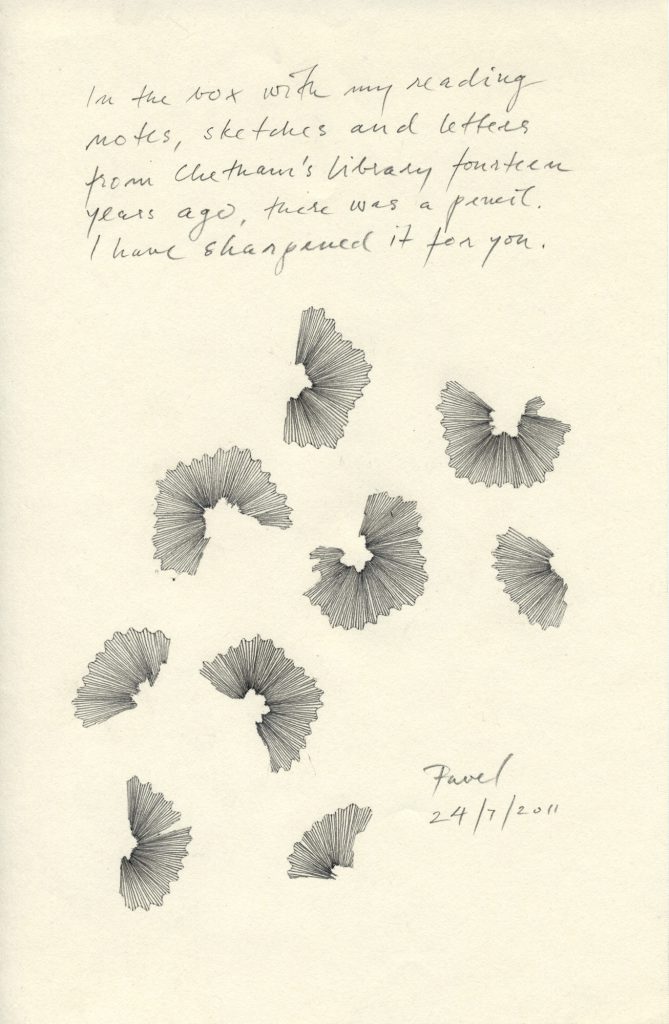 In the box with my reading
notes, sketches and letters
from Chetham's library fourteen
years ago, there was a pencil.
I have sharpened it for you.
Pavel
24/7/2011